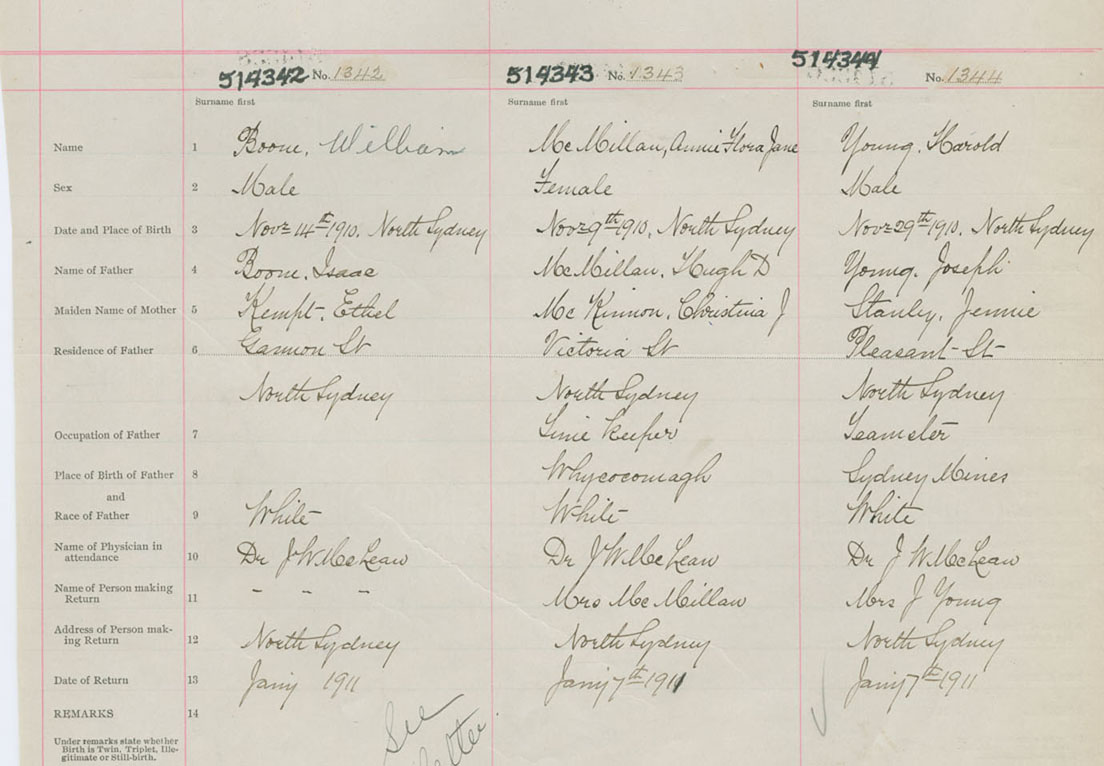 514342 No. 1342 514343 No. 1343 514344 No. 1344
Surname first Surname first Surname first
Name 1 Boone, William Mc Millan, Annie Flora Jane Young, Harold
Sex 2 Male Female Male
Date and Place of Birth 3 Novr 14th 1910, North Sydney Novr 9th 1910, North Sydney Novr 29th 1910, North Sydney
Name of Father 4 Boone, Isaac Mc Millan, Hugh D Young, Joseph
Maiden Name of Mother 5 Kempt, Ethel Mc Kinnon, Christina J Stanley, Jennie
Residence of Father 6 Gannon St Victoria St Pleasant St
North Sydney North Sydney North Sydney
Occupation of Father 7 Time Keeper Teamster
Place of Birth of Father 8 Whycocomagh Sydney Mines
and
Race of Father 9 White White White
Name of Physician in
attendance 10 Dr J W McLean Dr J W McLean Dr J W McLean
Name of Person making
Return 11 - - - Mrs McMillan Mrs J Young
Address of Person mak-
ing Return 12 North Sydney North Sydney North Sydney
Date of Return 13 Jany 1911 Jany 7th 1911 Jany 7th 1911
REMARKS 14
See
letter
Under remarks state whether
Birth is Twin, Triplet, Ille-
gitimate or Still-birth.